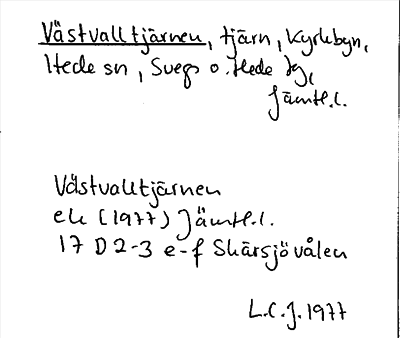 Västvalltjärnen, tjärn, Kyrkbyn,
Hede sn, Svegs o. Hede tg,
Jämtl.l.
Västvalltjärnen
ek (1977) Jämtl.l.
17 D 2-3 e-f Skärsjövålen
L.C.J. 1977